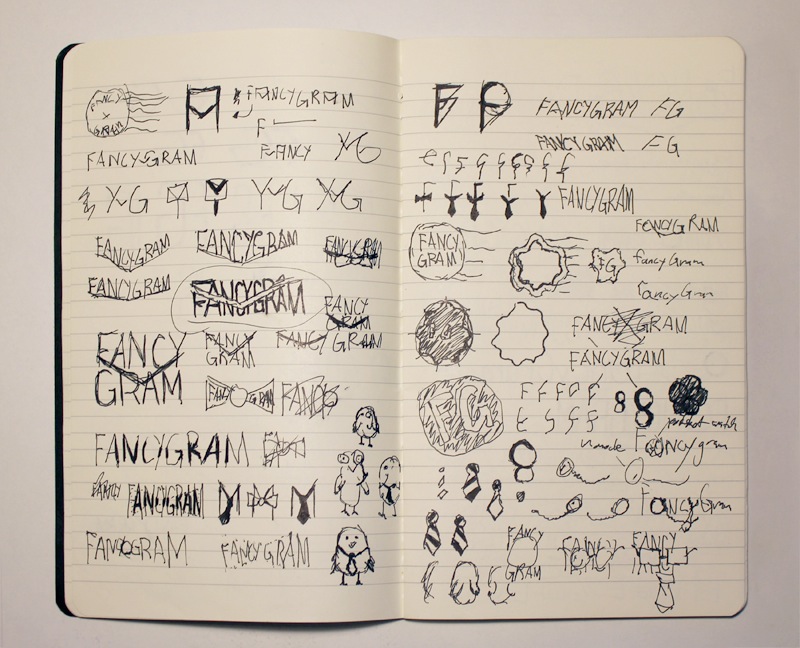 FANCY
X
GRAM
FANCYGRAM
F
FANCYGRAM
FANCY
YG
YG
YG
YG
FANCYGRAM
FANCYGRAM
FANCYGRAM
FANCYGRAM
FANCYGRAM
FANCY
GRAM
FANCY
GRAM
FANCY
GRAM
FANCY GRAM
FANCY GRAM
FANCY
FANCYGRAM
FANCY
FANCYGRAM
FANCYGRAM
FANCYGRAM
F
FANCYGRAM FG
FANCYGRAM FG
F F F F F
FANCYGRAM
FANCYGRAM
FANCY
GRAM
FG
fancyGram
fancyGram
FANCY GRAM
FANCYGRAM
FG
F F F F F
F S F F
8 8
Fancygram
FancyGram
FANCY
GRAM
FANCY
FANCY